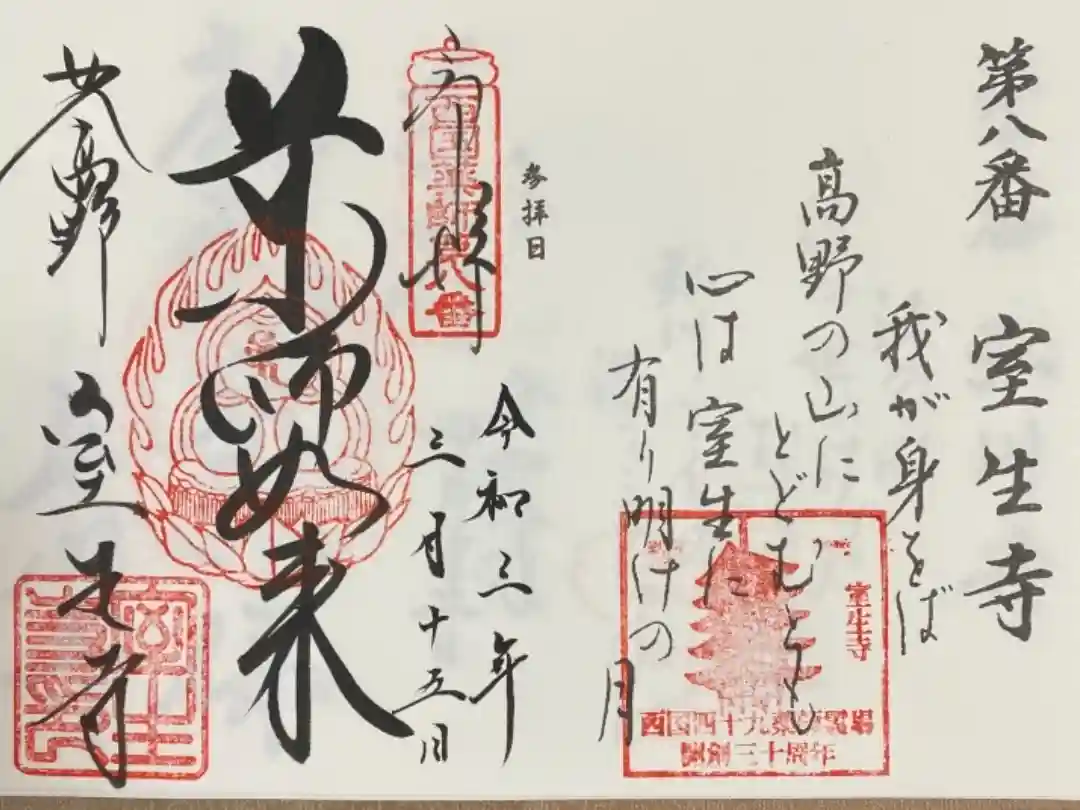 第八番 室生寺
我が身をば
高野の山に
とどむとも
心は室生に
有り明けの
月
室生寺
西国四十九薬師霊場
開創三十周年
参拝日
奉拝
西国薬師第八番
令和三年
三月十五日
薬師如来
女人高野 室生寺